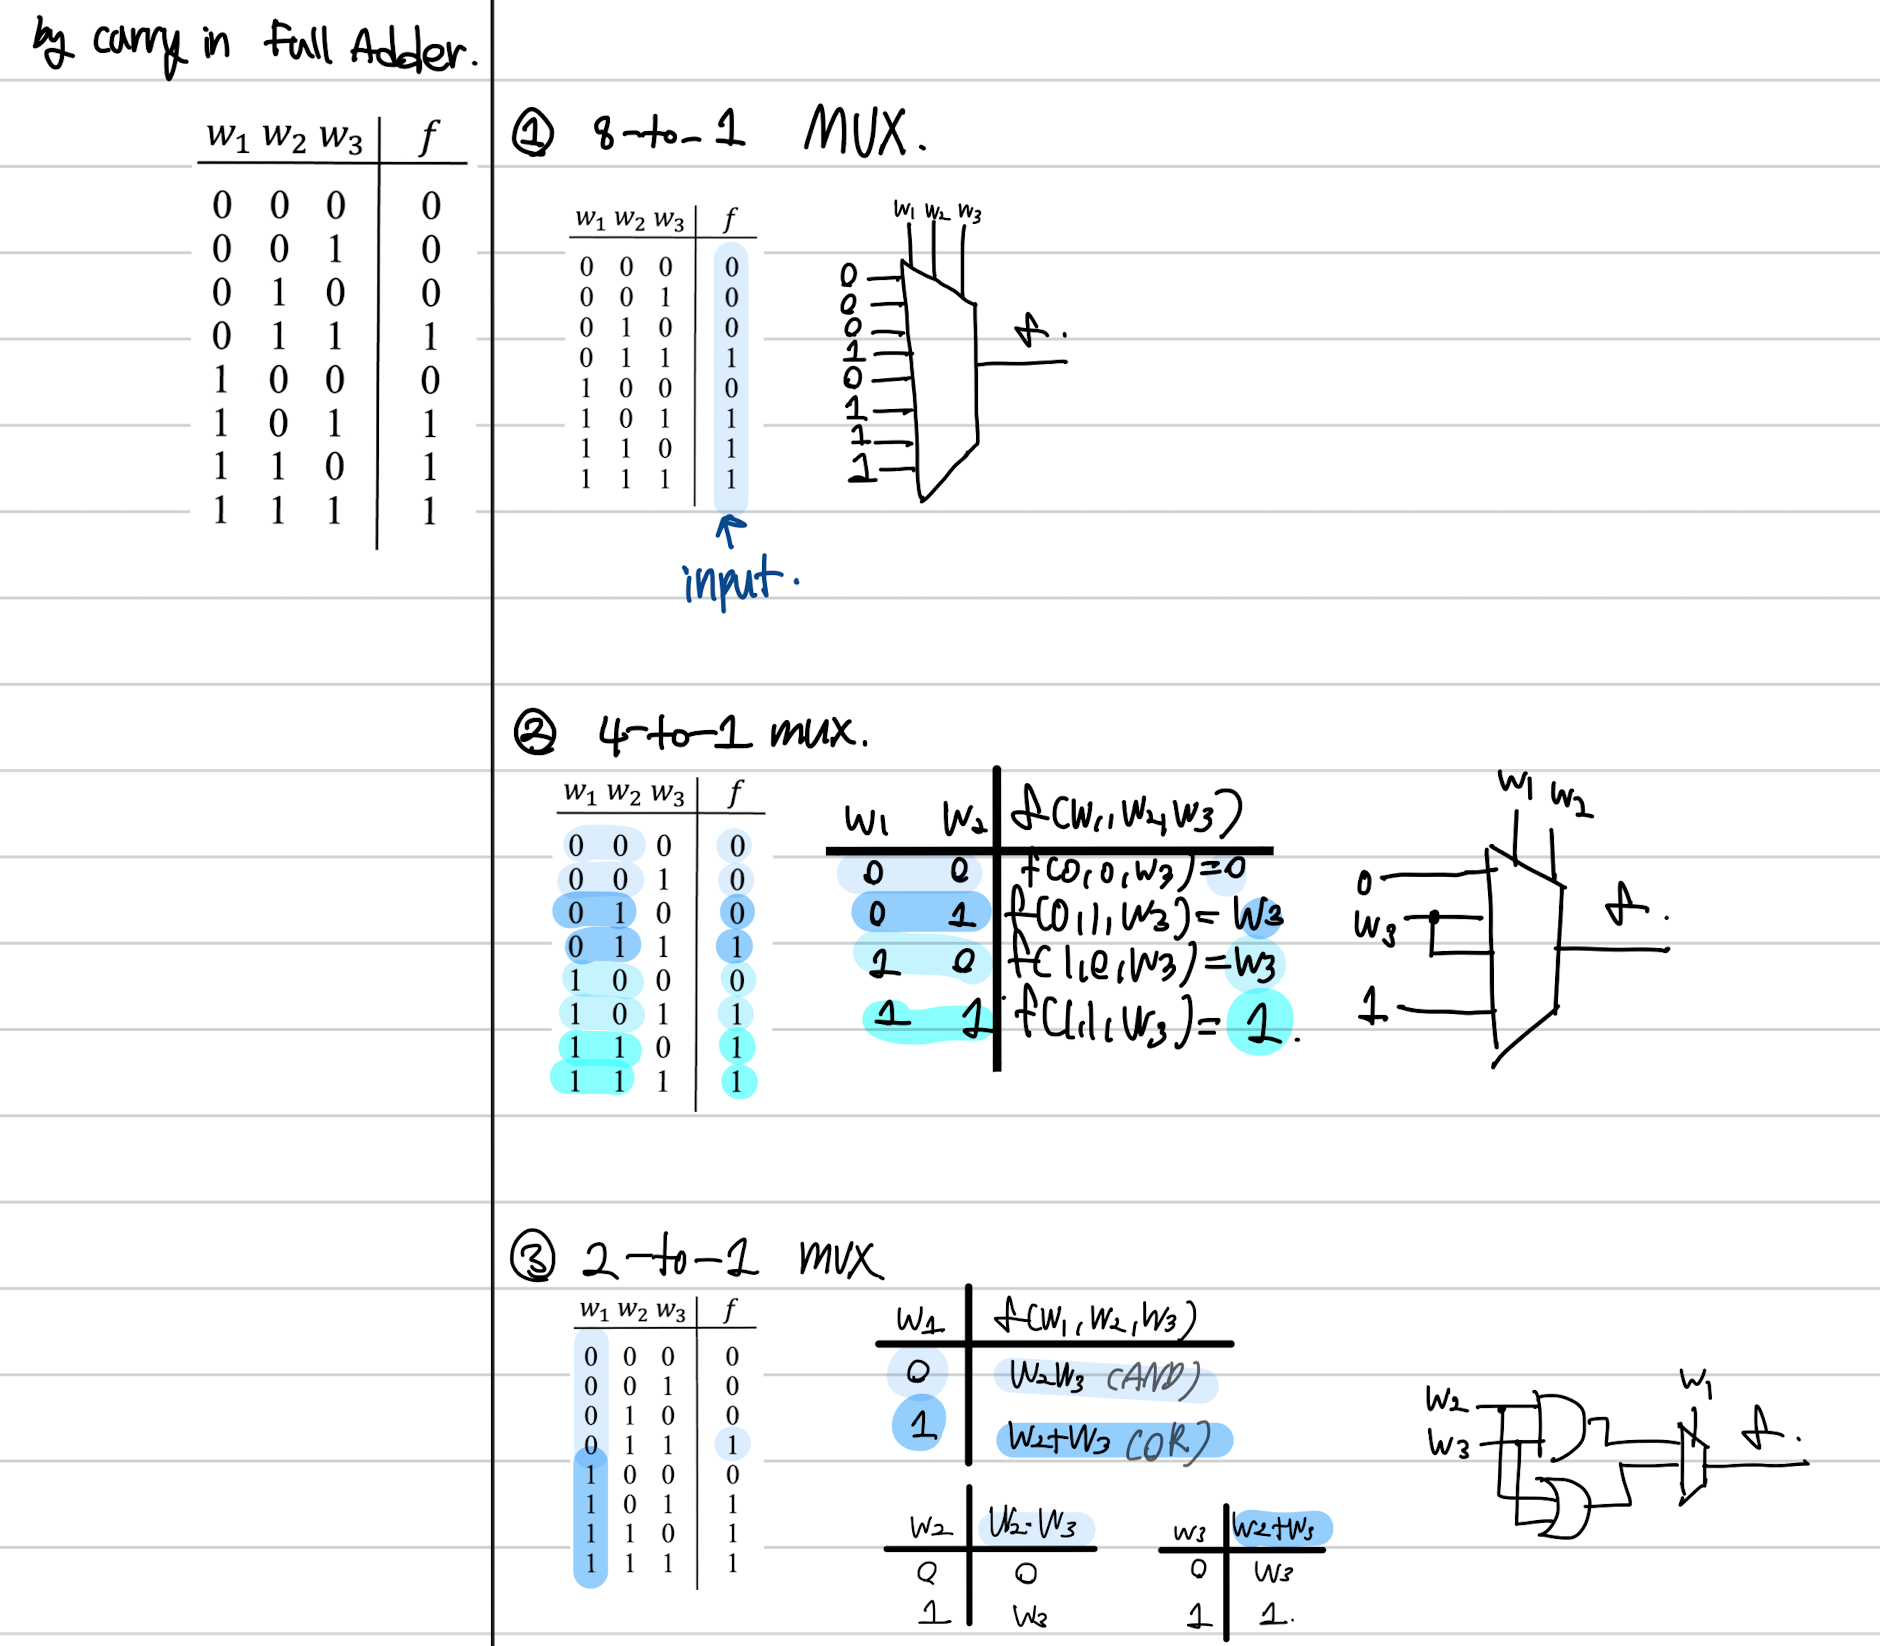 by carry in Full Adder.
w1 w2 w3 f
0 0 0 0
0 0 1 0
0 1 0 0
0 1 1 1
1 0 0 0
1 0 1 1
1 1 0 1
1 1 1 1
① 8-to-1 MUX.
w1 w2 w3 f
0 0 0 0
0 0 1 0
0 1 0 0
0 1 1 1
1 0 0 0
1 0 1 1
1 1 0 1
1 1 1 1
input.
W1 W2 W3
0
0
0
1
0
1
1
1
f.
② 4-to-1 mux.
w1 w2 w3 f
0 0 0 0
0 0 1 0
0 1 0 0
0 1 1 1
1 0 0 0
1 0 1 1
1 1 0 1
1 1 1 1
W1 W2 f(W1,W2,W3)
0 0 f(0,0,W3)=0
0 1 f(0,1,W3)=W3
1 0 f(1,0,W3)=W3
1 1 f(1,1,W3)=1.
W1 W2
0
W3
1
f.
③ 2-to-1 MUX
w1 w2 w3 f
0 0 0 0
0 0 1 0
0 1 0 0
0 1 1 1
1 0 0 0
1 0 1 1
1 1 0 1
1 1 1 1
W1 f(W1,W2,W3)
0 W2W3 (AND)
1 W2+W3 (OR)
W2 W2·W3
0 0
1 W3
W3 W2+W3
0 W3
1 1.
W2
W3
W1
f.